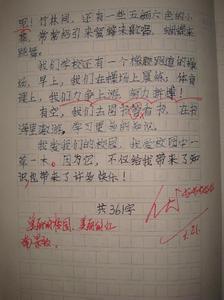 吧！竹林间，还有一些五颜六色的小
花，常常招引来蜜蜂来歌唱，蝴蝶来
跳舞。
我们学校还有一个橡胶跑道的操
场。早上，我们在操场上晨练，体育
课上，我们力争上游，努力拼搏！
有空，我们去图书馆看书，在书
海里遨游，学习更多的知识。
我爱我们的校园，我爱校园中一
草一木。因为它，不仅给我带来了知
识也带来了许多快乐！
共361字
美丽的校园，美丽的